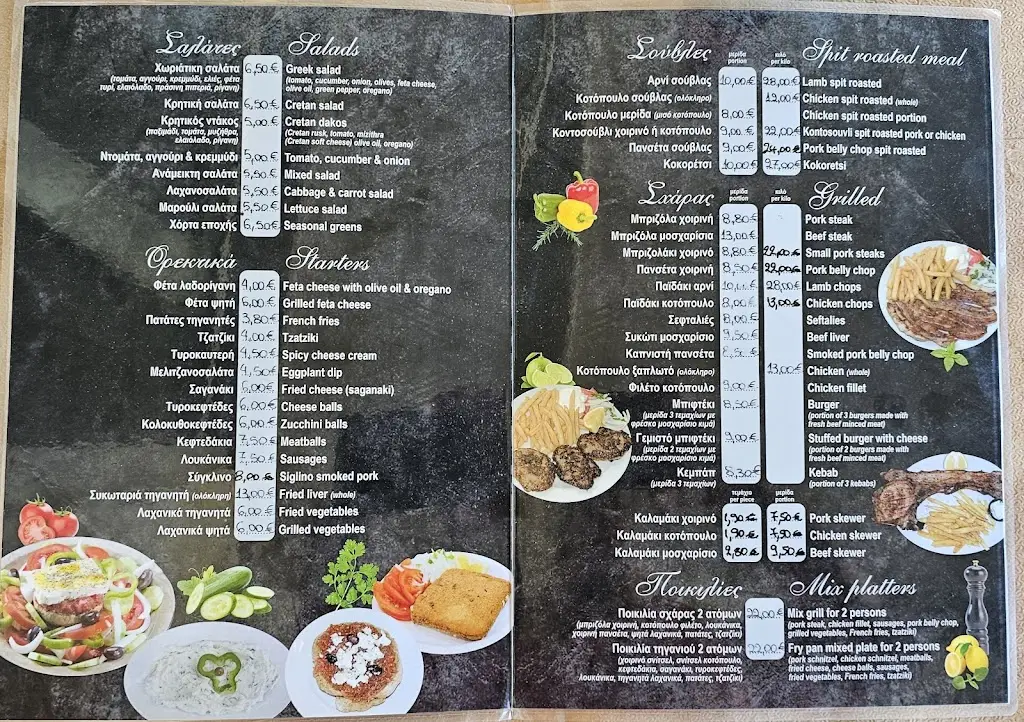 Σαλάτες Salads
Χωριάτικη σαλάτα 6,50€ Greek salad
(τομάτα, αγγούρι, κρεμμύδι, ελιές, φέτα (tomato, cucumber, onion, olives, feta cheese,
τυρί, ελαιόλαδο, πράσινη πιπεριά, ρίγανη) olive oil, green pepper, oregano)
Κρητική σαλάτα 6,50€ Cretan salad
Κρητικός ντάκος 5,00€ Cretan dakos
(παξιμάδι, τομάτα, μυζήθρα, (Cretan rusk, tomato, mizithra
ελαιόλαδο, ρίγανη) (Cretan soft cheese) olive oil, oregano)
Ντομάτα, αγγούρι & κρεμμύδι 5,00€ Tomato, cucumber & onion
Ανάμεικτη σαλάτα 5,50€ Mixed salad
Λαχανοσαλάτα 5,50€ Cabbage & carrot salad
Μαρούλι σαλάτα 5,50€ Lettuce salad
Χόρτα εποχής 6,50€ Seasonal greens
Ορεκτικά Starters
Φέτα λαδορίγανη 4,00€ Feta cheese with olive oil & oregano
Φέτα ψητή 6,00€ Grilled feta cheese
Πατάτες τηγανητές 3,80€ French fries
Τζατζίκι 4,00€ Tzatziki
Τυροκαυτερή 4,50€ Spicy cheese cream
Μελιτζανοσαλάτα 4,50€ Eggplant dip
Σαγανάκι 6,00€ Fried cheese (saganaki)
Τυροκεφτέδες 6,00€ Cheese balls
Κολοκυθοκεφτέδες 6,00€ Zucchini balls
Κεφτεδάκια 7,50€ Meatballs
Λουκάνικα 7,50€ Sausages
Σύγκλινο Siglino smoked pork
Συκωταριά τηγανητή (ολόκληρη) 13,00€ Fried liver (whole)
Λαχανικά τηγανητά 6,00€ Fried vegetables
Λαχανικά ψητά 6,00€ Grilled vegetables
Σούβλες Spit roasted meal
μερίδα κιλό
portion per kilo
Αρνί σούβλας 10,00€ 28,00€ Lamb spit roasted
Κοτόπουλο σούβλας (ολόκληρο) Chicken spit roasted (whole)
Κοτόπουλο μερίδα (μισό κοτόπουλο) 8,00€ Chicken spit roasted portion
Κοντοσούβλι χοιρινό ή κοτόπουλο 9,00€ 22,00€ Kontosouvli spit roasted pork or chicken
Πανσέτα σούβλας 9,00€ 24,00€ Pork belly chop spit roasted
Κοκορέτσι 10,00€ 27,00€ Kokoretsi
Σχάρας Grilled
μερίδα κιλό
portion per kilo
Μπριζόλα χοιρινή 8,80€ Pork steak
Μπριζόλα μοσχαρίσια 13,00€ Beef steak
Μπριζολάκι χοιρινό 8,80€ 22,00€ Small pork steaks
Πανσέτα χοιρινή 8,50€ 22,00€ Pork belly chop
Παϊδάκι αρνί 28,00€ Lamb chops
Παϊδάκι κοτόπουλο 8,00€ 13,00€ Chicken chops
Σεφταλιές 8,00€ Seftalies
Συκώτι μοσχαρίσιο 9,50€ Beef liver
Καπνιστή πανσέτα Smoked pork belly chop
Κοτόπουλο ξαπλωτό (ολόκληρο) 13,00€ Chicken (whole)
Φιλέτο κοτόπουλο 9,00€ Chicken fillet
Μπιφτέκι 8,50€ Burger
(μερίδα 3 τεμαχίων με (portion of 3 burgers made with
φρέσκο μοσχαρίσιο κιμά) fresh beef minced meat)
Γεμιστό μπιφτέκι 9,00€ Stuffed burger with cheese
(μερίδα 2 τεμαχίων με (portion of 2 burgers made with
φρέσκο μοσχαρίσιο κιμά) fresh beef minced meat)
Κεμπάπ 8,30€ Kebab
(μερίδα 3 τεμαχίων) (portion of 3 kebabs)
τεμάχιο μερίδα
per piece portion
Καλαμάκι χοιρινό 1,90€ 7,50€ Pork skewer
Καλαμάκι κοτόπουλο 1,90€ 7,50€ Chicken skewer
Καλαμάκι μοσχαρίσιο 2,80€ 9,50€ Beef skewer
Ποικιλίες Mix platters
Ποικιλία σχάρας 2 ατόμων 22,00€ Mix grill for 2 persons
(μπριζόλα χοιρινή, κοτόπουλο φιλέτο, λουκάνικα, (pork steak, chicken fillet, sausages, pork belly chop,
χοιρινή πανσέτα, ψητά λαχανικά, πατάτες, τζατζίκι) grilled vegetables, French fries, tzatziki)
Ποικιλία τηγανιού 2 ατόμων 22,00€ Fry pan mixed plate for 2 persons
(χοιρινό σνίτσελ, σνίτσελ κοτόπουλο, (pork schnitzel, chicken schnitzel, meatballs,
κεφτεδάκια, σαγανάκι, τυροκεφτέδες, fried cheese, cheese balls, sausages,
λουκάνικα, τηγανητά λαχανικά, πατάτες, τζατζίκι) fried vegetables, French fries, tzatziki)